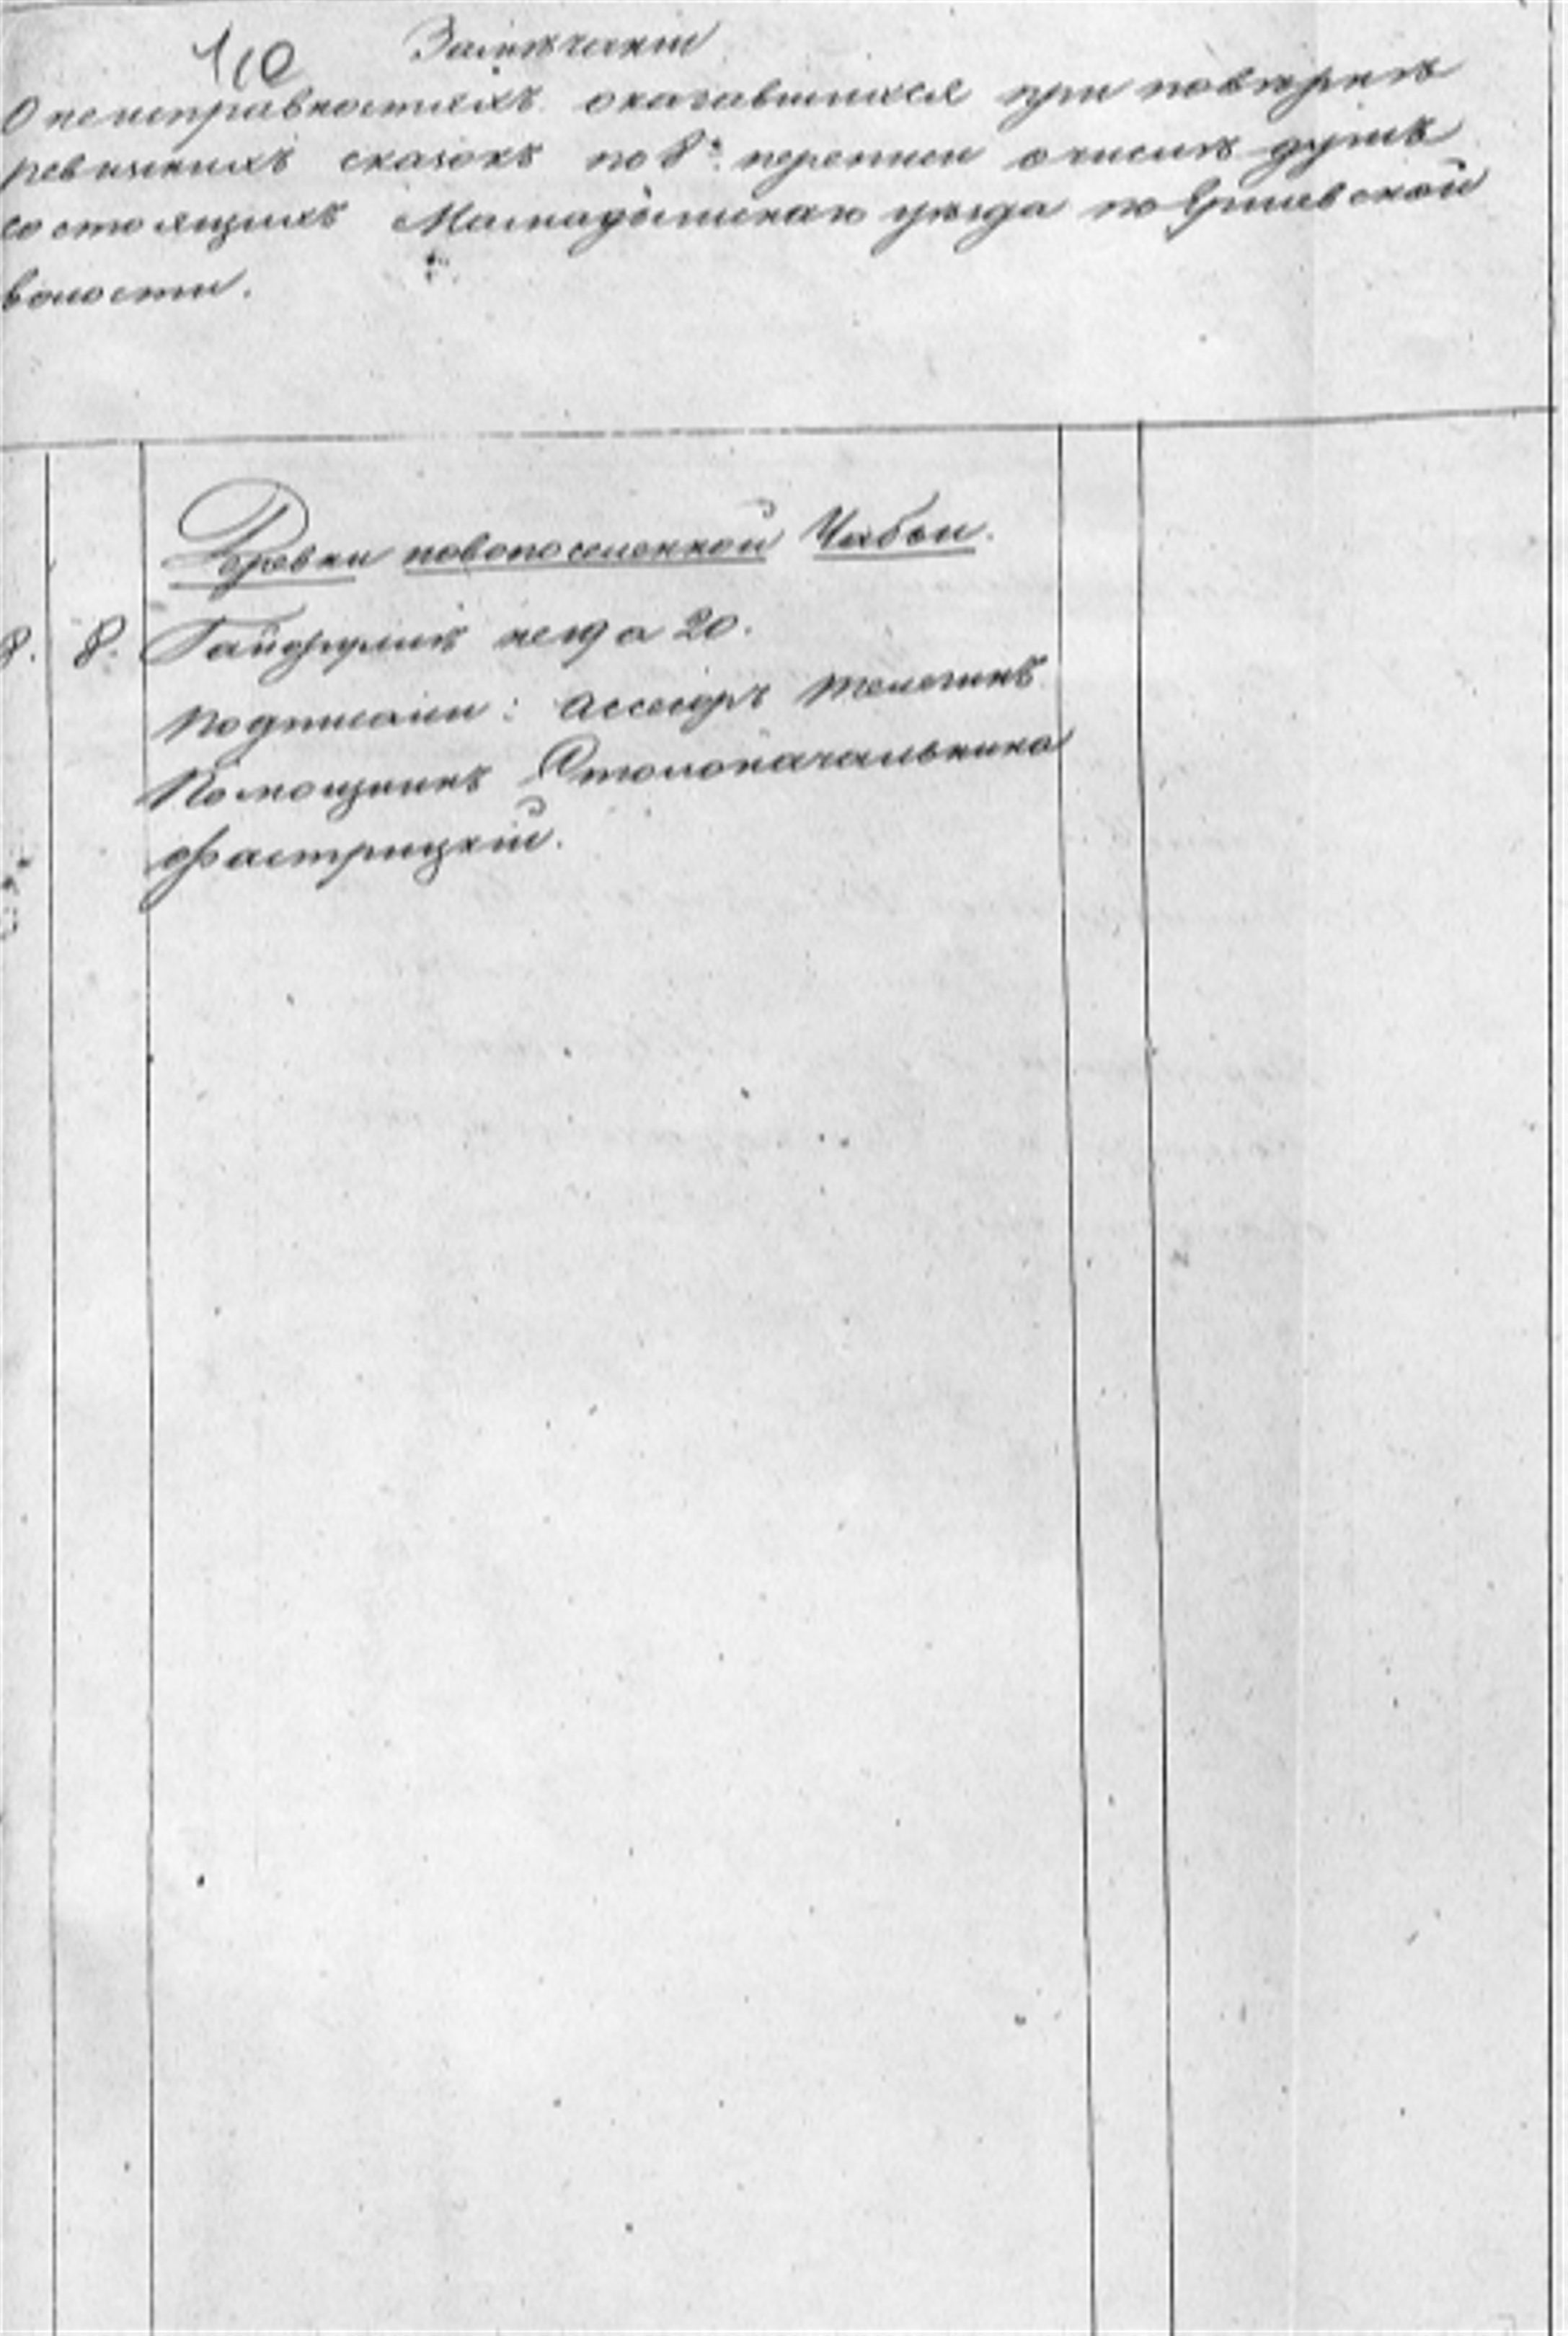 110 Замѣчаніе
О неисправностяхъ оказавшихся при повѣркѣ
ревизскихъ сказокъ по 8й переписи о числѣ душъ
состоящихъ Мамадышскаго уѣзда по
волости.
Деревни новопоселенной Чабьи.
8. 8. Гайфулинъ не 19 а 20.
Подписали: Ассесоръ Телегинъ
Помощникъ Столоначальника
Фастрицкій.